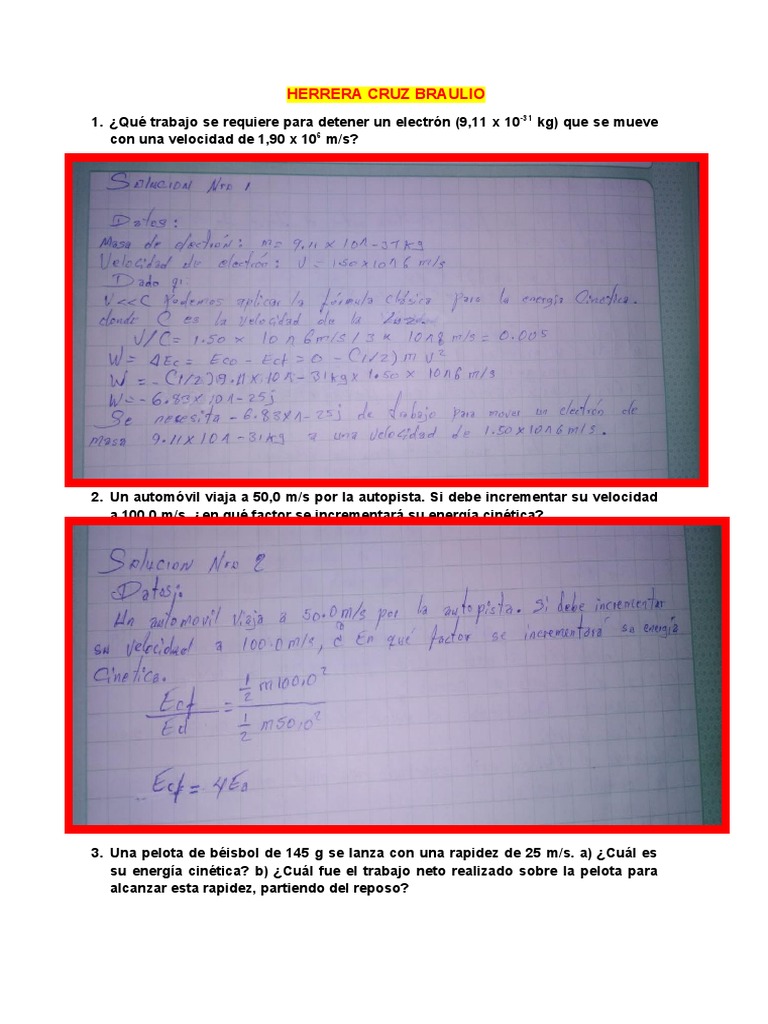 HERRERA CRUZ BRAULIO
1. ¿Qué trabajo se requiere para detener un electrón (9,11 x 10⁻³¹ kg) que se mueve
con una velocidad de 1,90 x 10⁶ m/s?
SOLUCION Nro 1
Datos:
Masa de electrón: m= 9.11 x 10^-31kg
Velocidad de electrón: V = 1.50x10^6 m/s
Dado q:
V<<C Podemos aplicar la fórmula clásica para la energía Cinética.
donde C es la velocidad de la
V/C = 1.50 x 10^6m/s / 3 x 10^8 m/s = 0.005
W = ΔEc = Eco - Ecf = 0 - (1/2) m v²
W = - (1/2)9.11x10^-31kg x 1.50 x 10^6 m/s
W= - 6.83x10^-25j
Se necesita - 6.83x1^-25j de trabajo para mover un electrón de
masa 9.11x10^-31kg a una velocidad de 1.50x10^6m/s.
2. Un automóvil viaja a 50,0 m/s por la autopista. Si debe incrementar su velocidad
a 100,0 m/s, ¿en qué factor se incrementará su energía cinética?
SOLUCION Nro 2
Datos:
Un automovil viaja a 50.0m/s por la autopista. Si debe incrementar
su velocidad a 100.0m/s, ¿ En qué factor se incrementará su energía
Cinetica.
Ecf / Eci = ½ m100,0² / ½ m50,0²
Ecf = 4Ec
3. Una pelota de béisbol de 145 g se lanza con una rapidez de 25 m/s. a) ¿Cuál es
su energía cinética? b) ¿Cuál fue el trabajo neto realizado sobre la pelota para
alcanzar esta rapidez, partiendo del reposo?